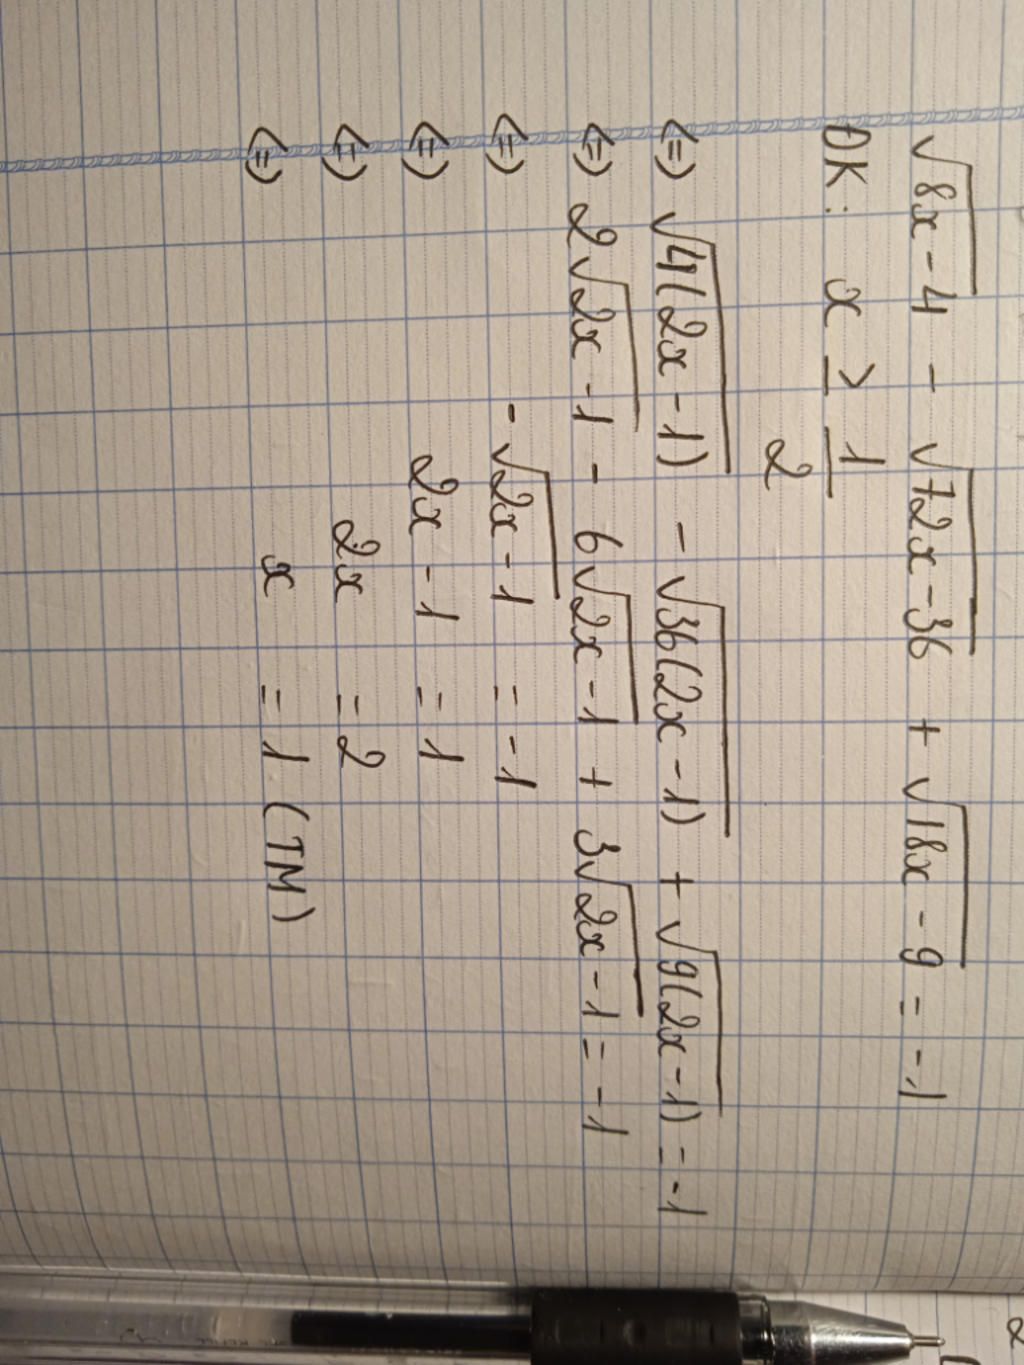 √(8x-4) - √(72x-36) + √(18x-9) = -1
ĐK: x ≥ 1/2
<=> √(4(2x-1)) - √(36(2x-1)) + √(9(2x-1)) = -1
<=> 2√(2x-1) - 6√(2x-1) + 3√(2x-1) = -1
<=> -√(2x-1) = -1
<=> 2x-1 = 1
<=> 2x = 2
<=> x = 1 (TM)